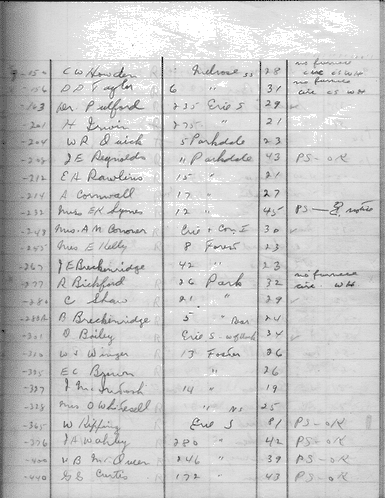 -150 C W Howden Melrose 28 no furnace circ CS WH
-156 D D Taylor 6 " 31 no furnace circ CS WH
-163 Dr Pulford 235 Erie S 29
-201 H Irwin 275 " 21
-204 W R Quick 5 Parkdale 23
J E Reynolds 11 Parkdale 43 PS-OK
-212 E H Rawlins 15 " 21
-214 A Cornwall 17 " 27
-232 Mrs EK Symes 12 " 45 PS — notice
Mrs A M Conover Erie + Con I 30
Mrs E Kelly 8 Forest 23
-267 J E Breckenridge 42 " 23
-277 R Bickford 26 Park 32 no furnace circ WH
-280 C Shaw 21 " 29
B Breckenridge 5 " 24
-301 O Bailey Erie S 34
W J Winger 13 Foster 26
E C Brown " 26
-337 J 14 " 19
-338 Mrs O Whitesell " NS 25
-365 W Kipping Erie S 81 PS-OK
-376 J A 280 " 42 PS-OK
246 " 39 PS-OK
-440 Curtis 172 " 43 PS-OK